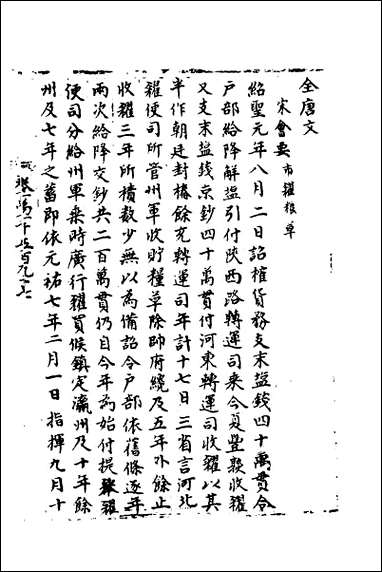 全唐文
宋會要 市糴糧草
紹聖元年八月二日詔榷貨務支末塩錢四十萬貫令
戶部給降解塩引付陝西路轉運司乘今夏豐熟收糴
又支末塩錢京鈔四十萬貫付河東轉運司收糴以其
半作朝廷封樁餘充轉運司年計十七日三省言河北
糴便司所管州軍收貯糧草除帥府纔及五年外餘止
收糴三年所積數少無以為備詔令戶部依舊條逐年
兩次給降交鈔共二百萬貫仍自今年為始付提舉糴
便司分給州軍乘時廣行糴買候鎮定瀛州及十年餘
州及七年之蓄即依元祐七年二月一日指揮九月十